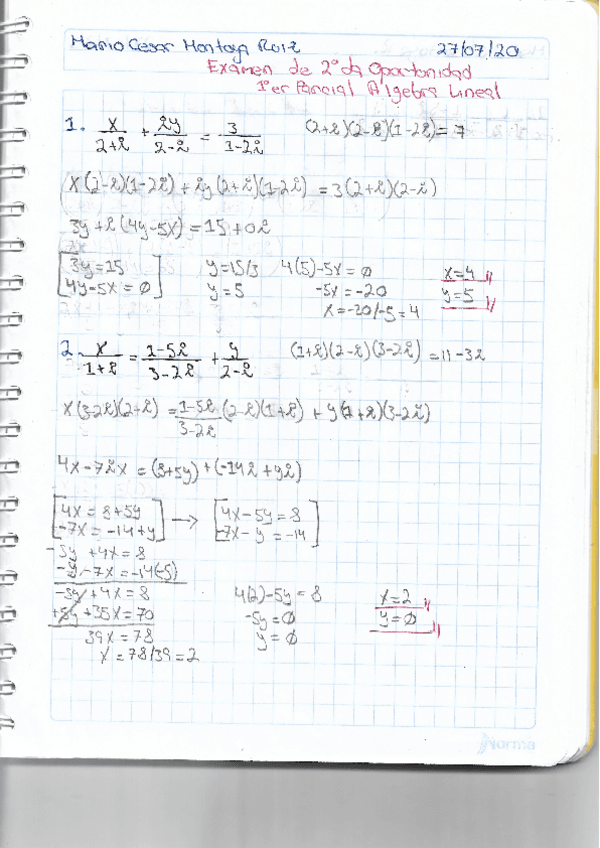 Mario Cesar Montoya Ruiz 27/07/20
Examen de 2° da Oportunidad
1°er Parcial Algebra Lineal
1. x/2+i + iy/2-i = 3/1-2i (2+i)(2-i)(1-2i)= 7
x(2-i)(1-2i)+iy(2+i)(1-2i) = 3(2+i)(2-i)
3y+i(4y-5x)=15+0i
[3y=15 y=15/3 4(5)-5x=0 x=4
4y-5x=0] y=5 -5x=-20 y=5
x=-20/-5=4
2. x/1+i = 1-5i/3-2i + y/2-i (1+i)(2-i)(3-2i)=11-3i
x(3-2i)(2+i) = 1-5i/3-2i (2-i)(1+i) + y(1+i)(3-2i)
4x-7ix = (8+5y)+(-14i+yi)
[4x=8+5y → [4x-5y=8
-7x=-14+y] -7x-y=-14]
-5y+4x=8
-y-7x=-14(-5)
-5y+4x=8 4(2)-5y=8 x=2
+5y+35x=70 -5y=0 y=0
39x=78 y=0
x=78/39=2
Norma